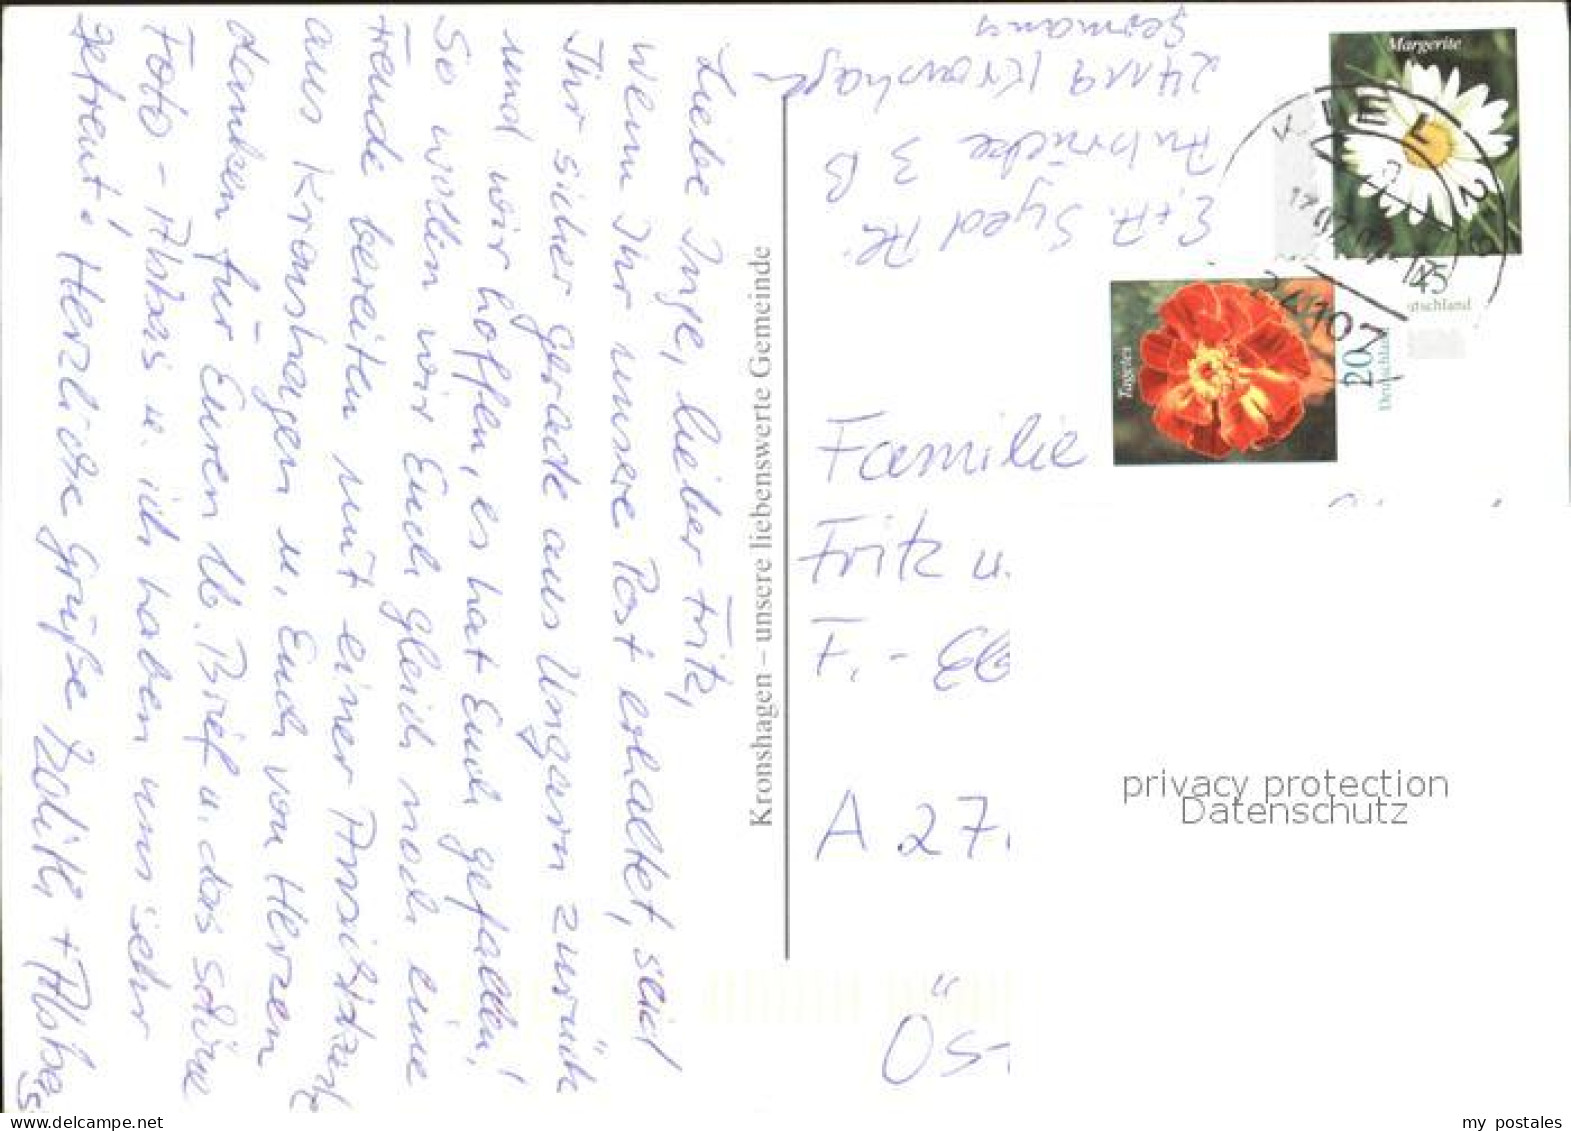 Liebe Inge, lieber Fritz,
wenn Ihr unsere Post erhaltet, seid
Ihr sicher gerade aus Ungarn zurück
und wir hoffen, es hat Euch gefallen!
So wollen wir Euch gleich noch eine
Freude bereiten mit einer Ansichtskarte
aus Kronshagen u. Euch von Herzen
danken für Euren lb. Brief u. das schöne
Foto - Abbas u. ich haben uns sehr
gefreut! Herzliche Grüße + Abbas
Kronshagen – unsere liebenswerte Gemeinde
E.+A. Syed
3 B
24119 Kronshagen
Germany
Margerite
45
Deutschland
Tagetes
20
Deutschland
KIEL
24107
Familie
Fritz u.
F.-
A 27
Ös-
privacy protection
Datenschutz
www.delcampe.net
my_postales